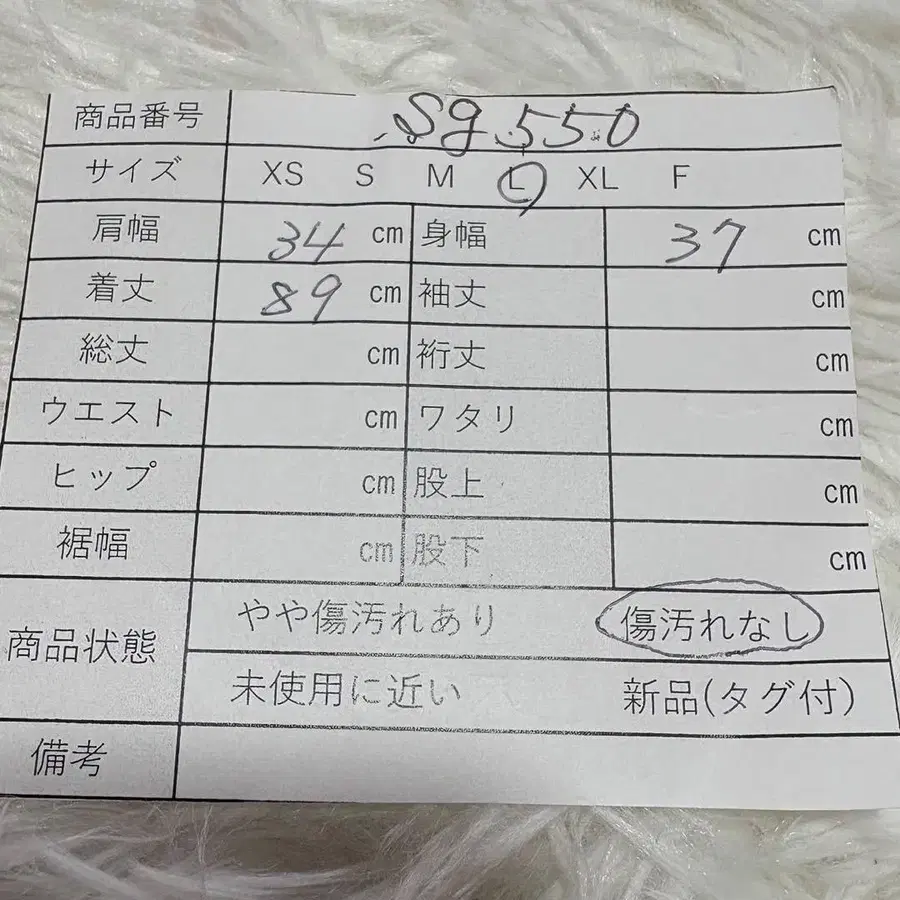 商品番号 Sg550
サイズ XS S M L XL F
肩幅 34 cm 身幅 37 cm
着丈 89 cm 袖丈 cm
総丈 cm 裄丈 cm
ウエスト cm ワタリ cm
ヒップ cm 股上 cm
裾幅 cm 股下 cm
商品状態 やや傷汚れあり 傷汚れなし
未使用に近い 新品(タグ付)
備考